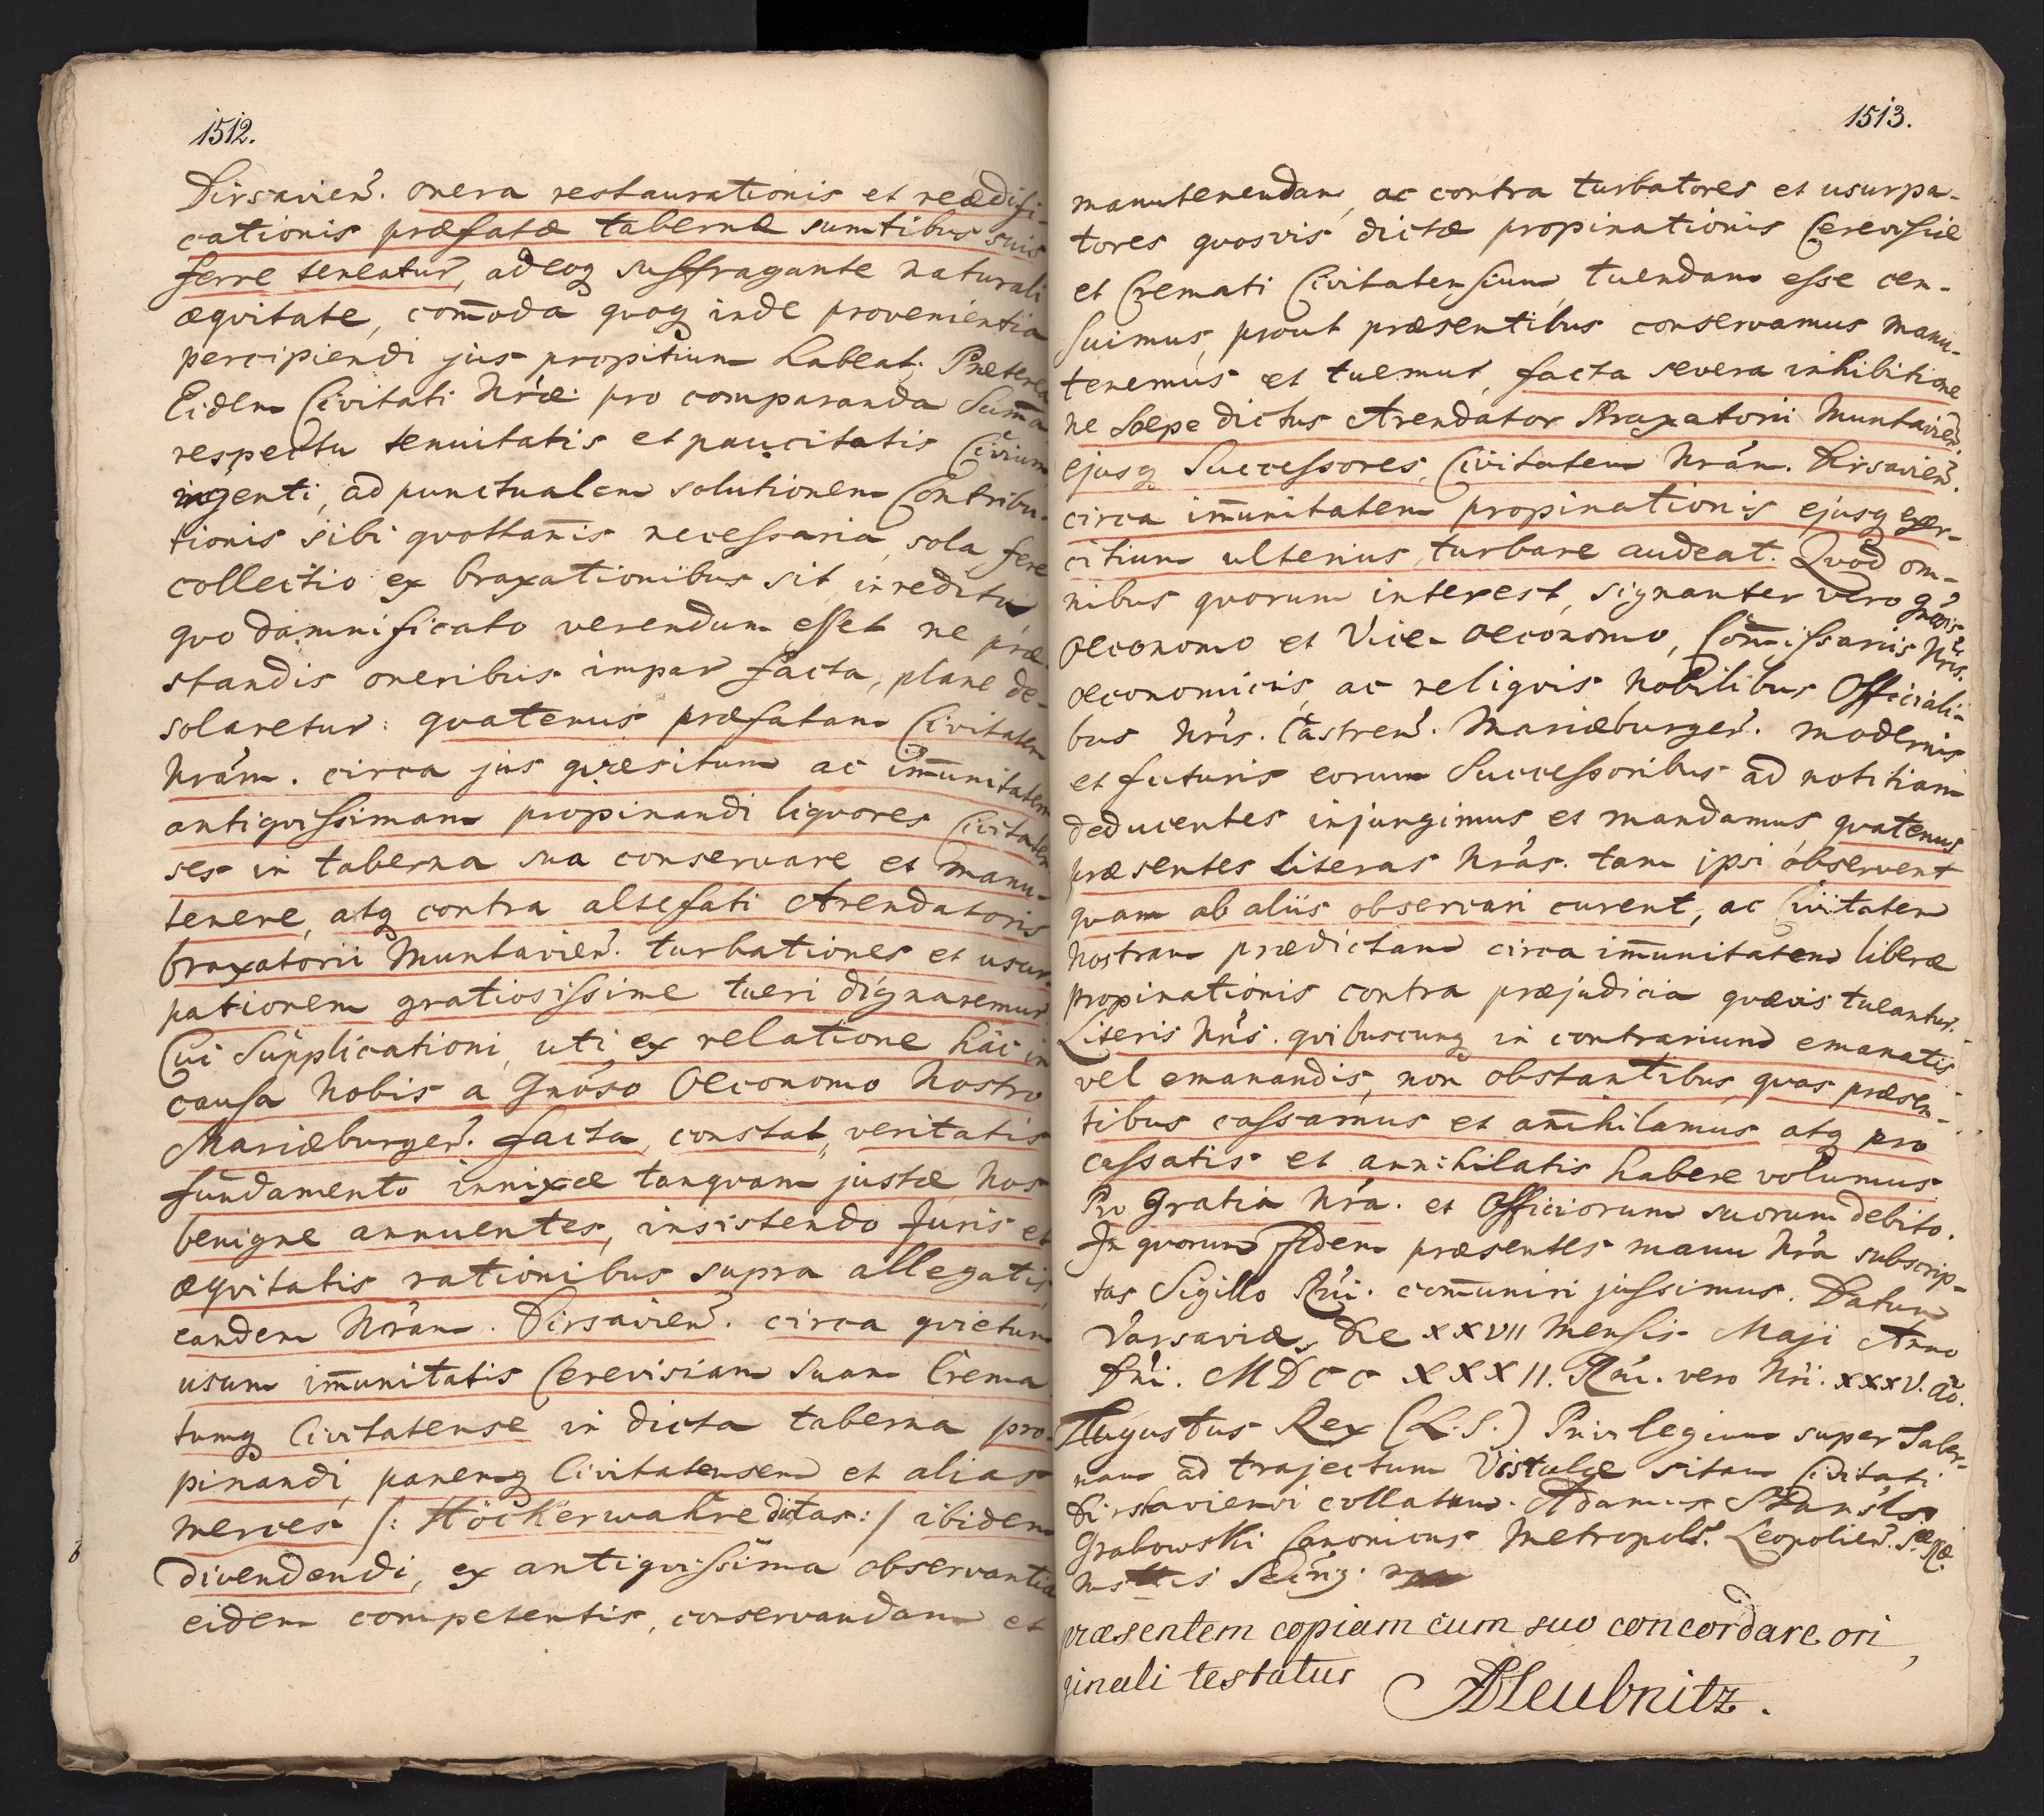 1512.
Dirsavien̄. onera restaurationis et reædifi-
cationis præfatæ tabernæ sumtibus suis
ferre teneatur, adeoq suffragante naturali
æqvitate, com̄oda qvoq inde provenientia
percipiendi jus propitium habeat. Præterea
Eidem Civitati Nr̃æ. pro comparanda Sum̄a
respectu tenuitatis et paucitatis Civium
ingenti, ad punctualem solutionem Contribu-
tionis sibi qvottan̄is necessaria, sola fere
collectio ex braxationibus sit in reditu
qvo damnificato verendum esset ne præ-
standis oneribus impar facta, plane de-
solaretur: qvatenus præfatam Civitatem
Nr̃am. circa jus qvæsitum ac im̄unitatem
antiqvissimam propinandi liqvores Civitaten
ses in taberna sua conservare et manu-
tenere, atq contra altefati Arendatoris
braxatorii Muntavien̄. turbationes et usur-
pationem gratiosissime tueri dignaremur.
Cui Supplicationi, uti ex relatione hac in
causa Nobis a Gnõso Oeconomo Nostro
Mariæburgen̄. facta, constat, veritatis
fundamento innixæ tanqvam justæ Nos
benigne annuentes, insistendo Juris et
æqvitatis rationibus supra allegatis,
eandem Nr̃am. Dirsavien̄. circa qvietum
usum im̄unitatis Cerevisiam suam Crema
tumq Civitatense in dicta taberna pro-
pinandi, panemq Civitatensem et alias
merces /: Höckerwahre dictas :/ ibidem
divendendi, ex antiqvissima observantia
eidem competentis, conservandam et
1513.
manutenendam, ac contra turbatores et usurpa-
tores qvosvis dictæ propinationis Cerevisiæ
et Cremati Civitatensium, tuendam esse cen-
suimus, prout præsentibus conservamus manu-
tenemus et tuemur, facta severa inhibitione
ne sæpe dictus Arendator Braxatorii Muntavien̄.
ejusq Successores, Civitatem Nr̃am. Dirsavien̄.
circa im̄unitatem propinationis ejusq exer-
citium ulterius turbare audeat. Qvod om-
nibus qvorum interest, signanter vero Gnõsis
Oeconomo et Vice-Oeconomo, Com̄issariis Nr̃is.
oeconomicis, ac reliqvis Nobilibus Officiali-
bus Nr̃is. Castren̄. Mariæburgen̄. modernis
et futuris eorum Successoribus ad notitiam
deducentes injungimus et mandamus, qvatenus
præsentes literas Nr̃as. tam ipsi observent
qvam ab aliis observari curent, ac Civitatem
Nostram prædictam circa im̄unitatem liberæ
propinationis contra præjudicia qvævis tueantur.
Literis Nr̃is. qvibuscunq in contrarium emanatis
vel emanandis, non obstantibus, qvas præsen-
tibus cassamus et an̄ihilamus atq pro
cassatis et annihilatis habere volumus
Pro Gratia Nr̃a. et Officiorum suorum debito.
In qvorum fidem præsentes manu Nr̃a subscrip-
tas Sigillo Rñi. com̄uniri jussimus. Datum
Varsaviæ, Die XXVII Mensis Maji Anno
Dñi. MDCC XXXII. Rñi. vero Nr̃i. XXXV. aõ.
Augustus Rex (L.S.) Privilegium super Taber-
nam ad trajectum Vistulæ sitam Civitati
Dirsaviensi collatum. Adamus Stanisls
Grabowski Canonicus Metropolt. Leopolien̄. S. R.
præsentem copiam cum suo concordare ori
ginali testatur